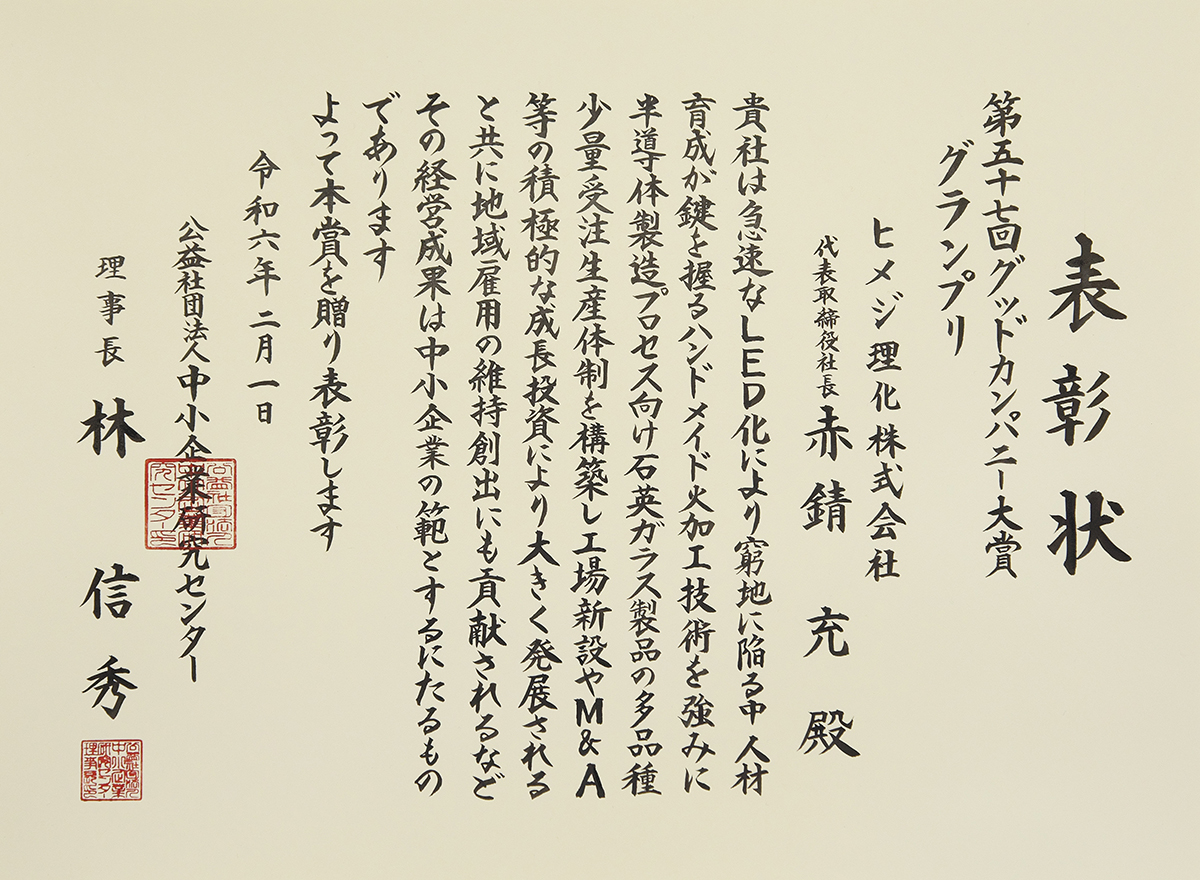 表彰状
第五十七回グッドカンパニー大賞
グランプリ
ヒメジ理化株式会社
代表取締役社長 赤錆 充 殿
貴社は急速なLED化により窮地に陥る中 人材
育成が鍵を握るハンドメイド火加工技術を強みに
半導体製造プロセス向け石英ガラス製品の多品種
少量受注生産体制を構築し工場新設やM&A
等の積極的な成長投資により大きく発展される
と共に地域雇用の維持創出にも貢献されるなど
その経営成果は中小企業の範とするにたるもの
であります
よって本賞を贈り表彰します
令和六年 二月一日
公益社団法人中小企業研究センター
理事長 林 信秀